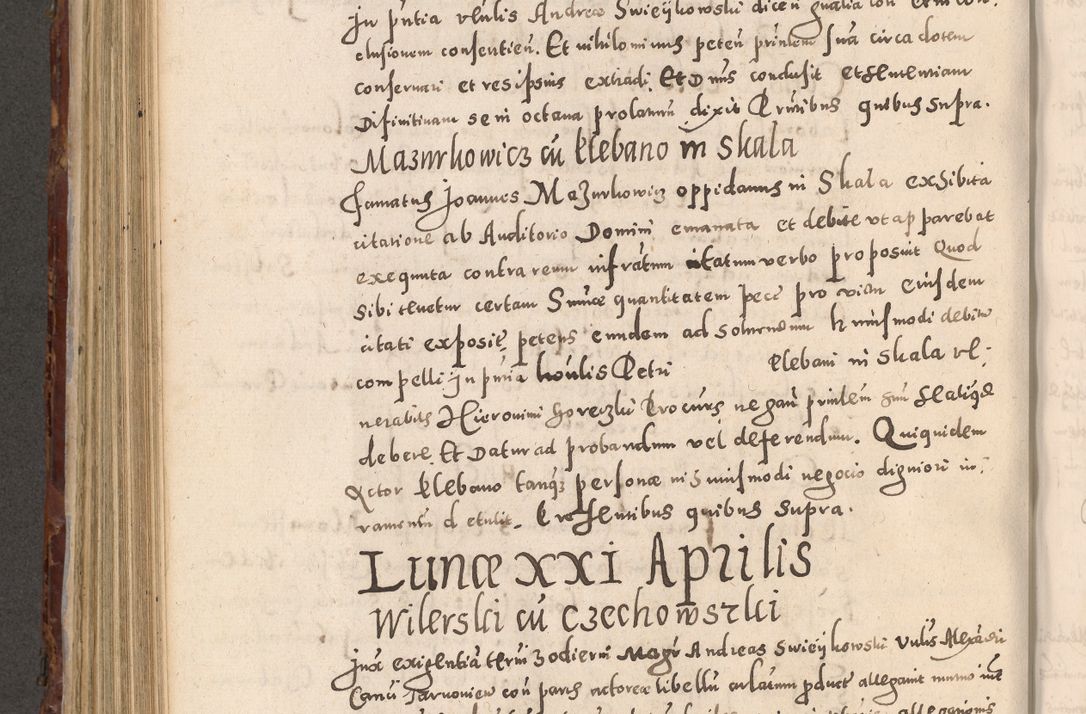 In pntia vlulis Andreæ Swieykowski dicen
clusionem consentien. Et nihilominus peten prinlem sua circa dotem
conservari et res ipsius extradi. Et Dnus conclusit et sententiam
Difinitivam se in octava prolaturu dixit Pnntibus quibus supra.
Mazurkowicz cu Plebano in Skala
Famatus Joannes Mazurkowicz oppidanus in Skala exhibita
citatione ab Auditorio Domini emanata et debite ut apparebat
exequuta contra reum infratum citatum verbo proposuit Quod
sibi tenetur certam Sumæ quantitatem pecc pro Eiusdem
citati exposit petens eundem ad solvendum huiusmodi debitu
compelli. In pntia honlis Petri Plebani in Skala vl.
nerabilis Hieronimi Procurs negavi prinlem
debere. Et Datur ad probandum vel deferendum. Quiquidem
Actor Plebano tanq personæ in huiusmodi negocio digniori iu
ramentu detulit. Præsentibus quibus supra.
Lunæ XXI Aprilis
Wilerski cu Czechowski
Jux exigentia termi hodierni Magr Andreas Swieykowski Vnlis Alexadri
Canci Tarnovien con partis actoreæ libellu oblatum product allegavit